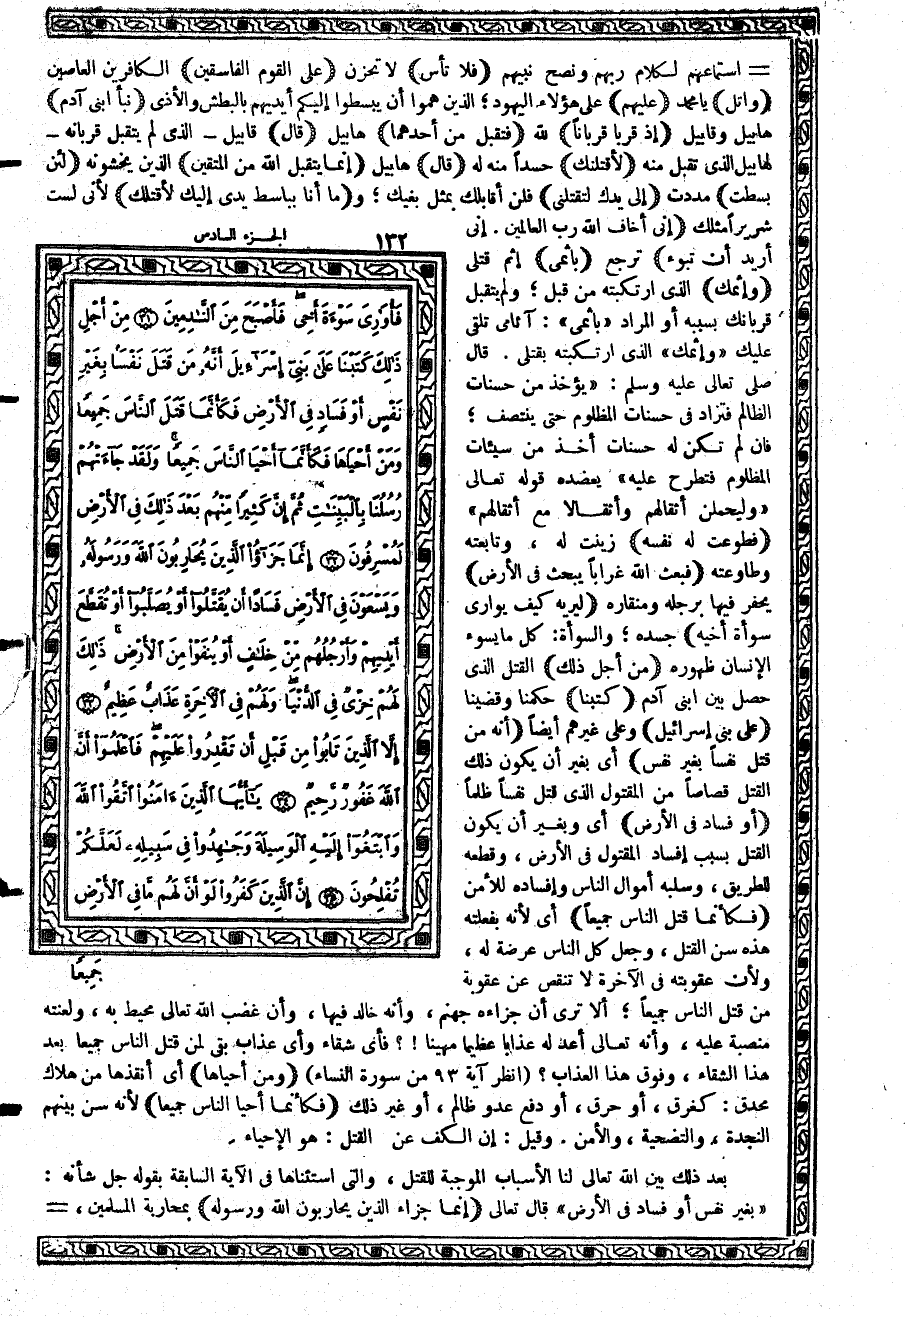 = استماعهم لكلام ربهم ونصح نبيهم (فلا تأس) لا تحزن (على القوم الفاسقين) الكافرين العاصين
(واتل) يا محمد (عليهم) على هؤلاء اليهود؛ الذين هموا أن يبسطوا إليكم أيديهم بالبطش والأذى (نبأ ابنى آدم)
هابيل وقابيل (إذ قربا قرباناً) لله (فتقبل من أحدهما) هابيل (قال) قابيل ــ الذى لم يتقبل قربانه ــ
لهابيل الذى تقبل منه (لأقتلنك) حسداً منه له (قال) هابيل (إنما يتقبل الله من المتقين) الذين يخشونه (لئن
بسطت) مددت (إلى يدك لتقتلنى) فلن أقابلك بمثل بغيك؛ و(ما أنا بباسط يدى إليك لأقتلك) لأنى لست
شريراً مثلك (إنى أخاف الله رب العالمين . إنى
أريد أن تبوء) ترجع (بإثمى) إثم قتلى
(وإثمك) الذى ارتكبته من قبل؛ ولم يتقبل
قربانك بسببه أو المراد «بإثمى» : آثامى تلقى
عليك «وإثمك» الذى ارتكبته بقتلى . قال
صلى تعالى عليه وسلم : «يؤخذ من حسنات
الظالم فتزاد فى حسنات المظلوم حتى ينتصف؛
فان لم تكن له حسنات أخذ من سيئات
المظلوم فتطرح عليه» يعضده قوله تعالى
«وليحملن أثقالهم وأثقالا مع أثقالهم»
(فطوعت له نفسه) زينت له ، وتابعته
وطاوعته (فبعث الله غراباً يبحث فى الأرض)
يحفر فيها برجله ومنقاره (ليريه كيف يوارى
سوأة أخيه) جسده؛ والسوأة: كل ما يسوء
الإنسان ظهوره (من أجل ذلك) القتل الذى
حصل بين ابنى آدم (كتبنا) حكمنا وقضينا
(على بنى إسرائيل) وعلى غيرهم أيضاً (أنه من
قتل نفساً بغير نفس) أى بغير أن يكون ذلك
القتل قصاصاً من المقتول الذى قتل نفساً ظلماً
(أو فساد فى الأرض) أى وبغير أن يكون
القتل بسبب إفساد المقتول فى الأرض ، وقطعه
للطريق ، وسلبه أموال الناس وإفساده للأمن
(فكأنما قتل الناس جميعاً) أى لأنه بفعلته
هذه سن القتل ، وجعل كل الناس عرضة له ،
ولأن عقوبته فى الآخرة لا تنقص عن عقوبة
الجزء السادس
١٣٢
فَأُوَٰرِىَ سَوْءَةَ أَخِى ۖ فَأَصْبَحَ مِنَ ٱلنَّـٰدِمِينَ ﴿٣١﴾ مِنْ أَجْلِ
ذَٰلِكَ كَتَبْنَا عَلَىٰ بَنِىٓ إِسْرَٰٓءِيلَ أَنَّهُۥ مَن قَتَلَ نَفْسًا بِغَيْرِ
نَفْسٍ أَوْ فَسَادٍ فِى ٱلْأَرْضِ فَكَأَنَّمَا قَتَلَ ٱلنَّاسَ جَمِيعًا
وَمَنْ أَحْيَاهَا فَكَأَنَّمَآ أَحْيَا ٱلنَّاسَ جَمِيعًا ۚ وَلَقَدْ جَآءَتْهُمْ
رُسُلُنَا بِٱلْبَيِّنَـٰتِ ثُمَّ إِنَّ كَثِيرًا مِّنْهُم بَعْدَ ذَٰلِكَ فِى ٱلْأَرْضِ
لَمُسْرِفُونَ ﴿٣٢﴾ إِنَّمَا جَزَٰٓؤُا۟ ٱلَّذِينَ يُحَارِبُونَ ٱللَّهَ وَرَسُولَهُۥ
وَيَسْعَوْنَ فِى ٱلْأَرْضِ فَسَادًا أَن يُقَتَّلُوٓا۟ أَوْ يُصَلَّبُوٓا۟ أَوْ تُقَطَّعَ
أَيْدِيهِمْ وَأَرْجُلُهُم مِّنْ خِلَـٰفٍ أَوْ يُنفَوْا۟ مِنَ ٱلْأَرْضِ ۚ ذَٰلِكَ
لَهُمْ خِزْىٌ فِى ٱلدُّنْيَا ۖ وَلَهُمْ فِى ٱلْـَٔاخِرَةِ عَذَابٌ عَظِيمٌ ﴿٣٣﴾
إِلَّا ٱلَّذِينَ تَابُوا۟ مِن قَبْلِ أَن تَقْدِرُوا۟ عَلَيْهِمْ ۖ فَٱعْلَمُوٓا۟ أَنَّ
ٱللَّهَ غَفُورٌ رَّحِيمٌ ﴿٣٤﴾ يَـٰٓأَيُّهَا ٱلَّذِينَ ءَامَنُوا۟ ٱتَّقُوا۟ ٱللَّهَ
وَٱبْتَغُوٓا۟ إِلَيْهِ ٱلْوَسِيلَةَ وَجَـٰهِدُوا۟ فِى سَبِيلِهِۦ لَعَلَّكُمْ
تُفْلِحُونَ ﴿٣٥﴾ إِنَّ ٱلَّذِينَ كَفَرُوا۟ لَوْ أَنَّ لَهُم مَّا فِى ٱلْأَرْضِ
جَمِيعًا
من قتل الناس جميعاً؛ ألا ترى أن جزاءه جهنم ، وأنه خالد فيها ، وأن غضب الله تعالى محيط به ، ولعنته
منصبة عليه ، وأنه تعالى أعد له عذابا عظيما مهينا !؟ فأى شقاء وأى عذاب بقى لمن قتل الناس جميعا بعد
هذا الشقاء ، وفوق هذا العذاب؟ (انظر آية ٩٣ من سورة النساء) (ومن أحياها) أى أنقذها من هلاك
محدق: كغرق ، أو حرق ، أو دفع عدو ظالم ، أو غير ذلك (فكأنما أحيا الناس جميعا) لأنه سن بينهم
النجدة ، والتضحية ، والأمن . وقيل : إن الكف عن القتل : هو الإحياء .
بعد ذلك بين الله تعالى لنا الأسباب الموجبة للقتل ، والتى استثناها فى الآية السابقة بقوله جل شأنه :
«بغير نفس أو فساد فى الأرض» قال تعالى (إنما جزاء الذين يحاربون الله ورسوله) بمحاربة المسلمين ، =